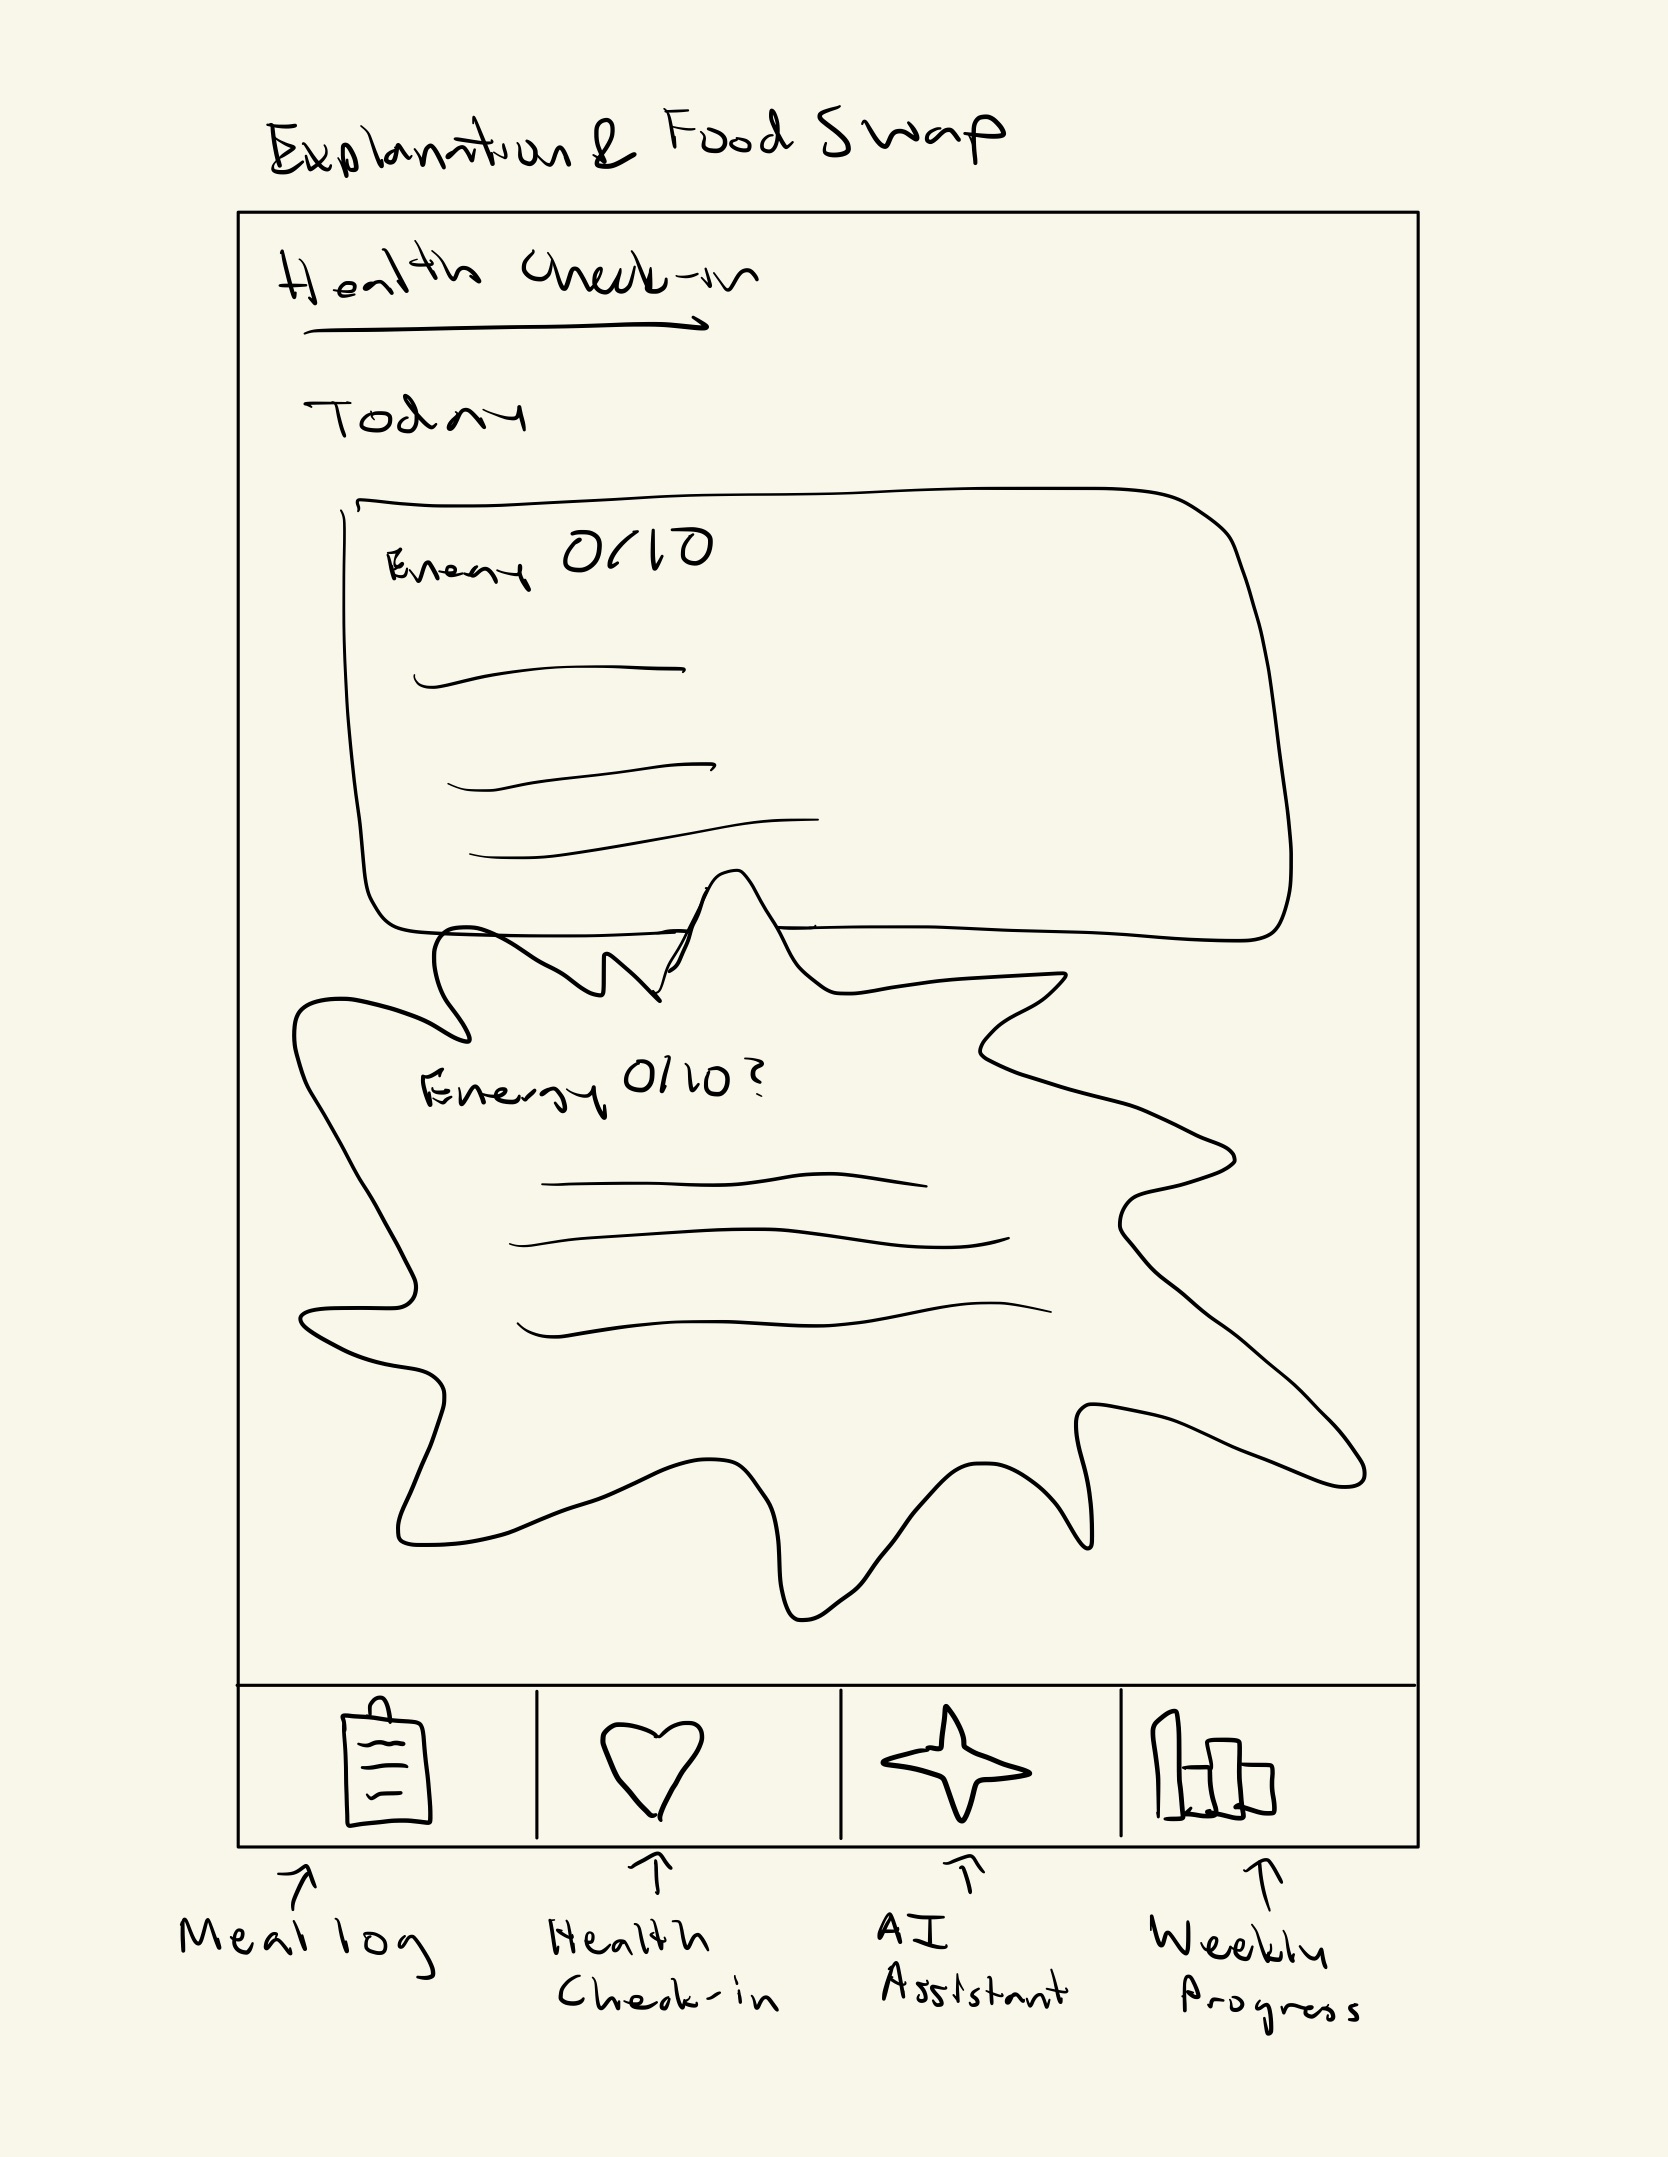 Explanation & Food Swap
Health Check-in
Today
Energy 0/10
Energy 0/10?
Meal log
Health
Check-in
AI
Assistant
Weekly
Progress